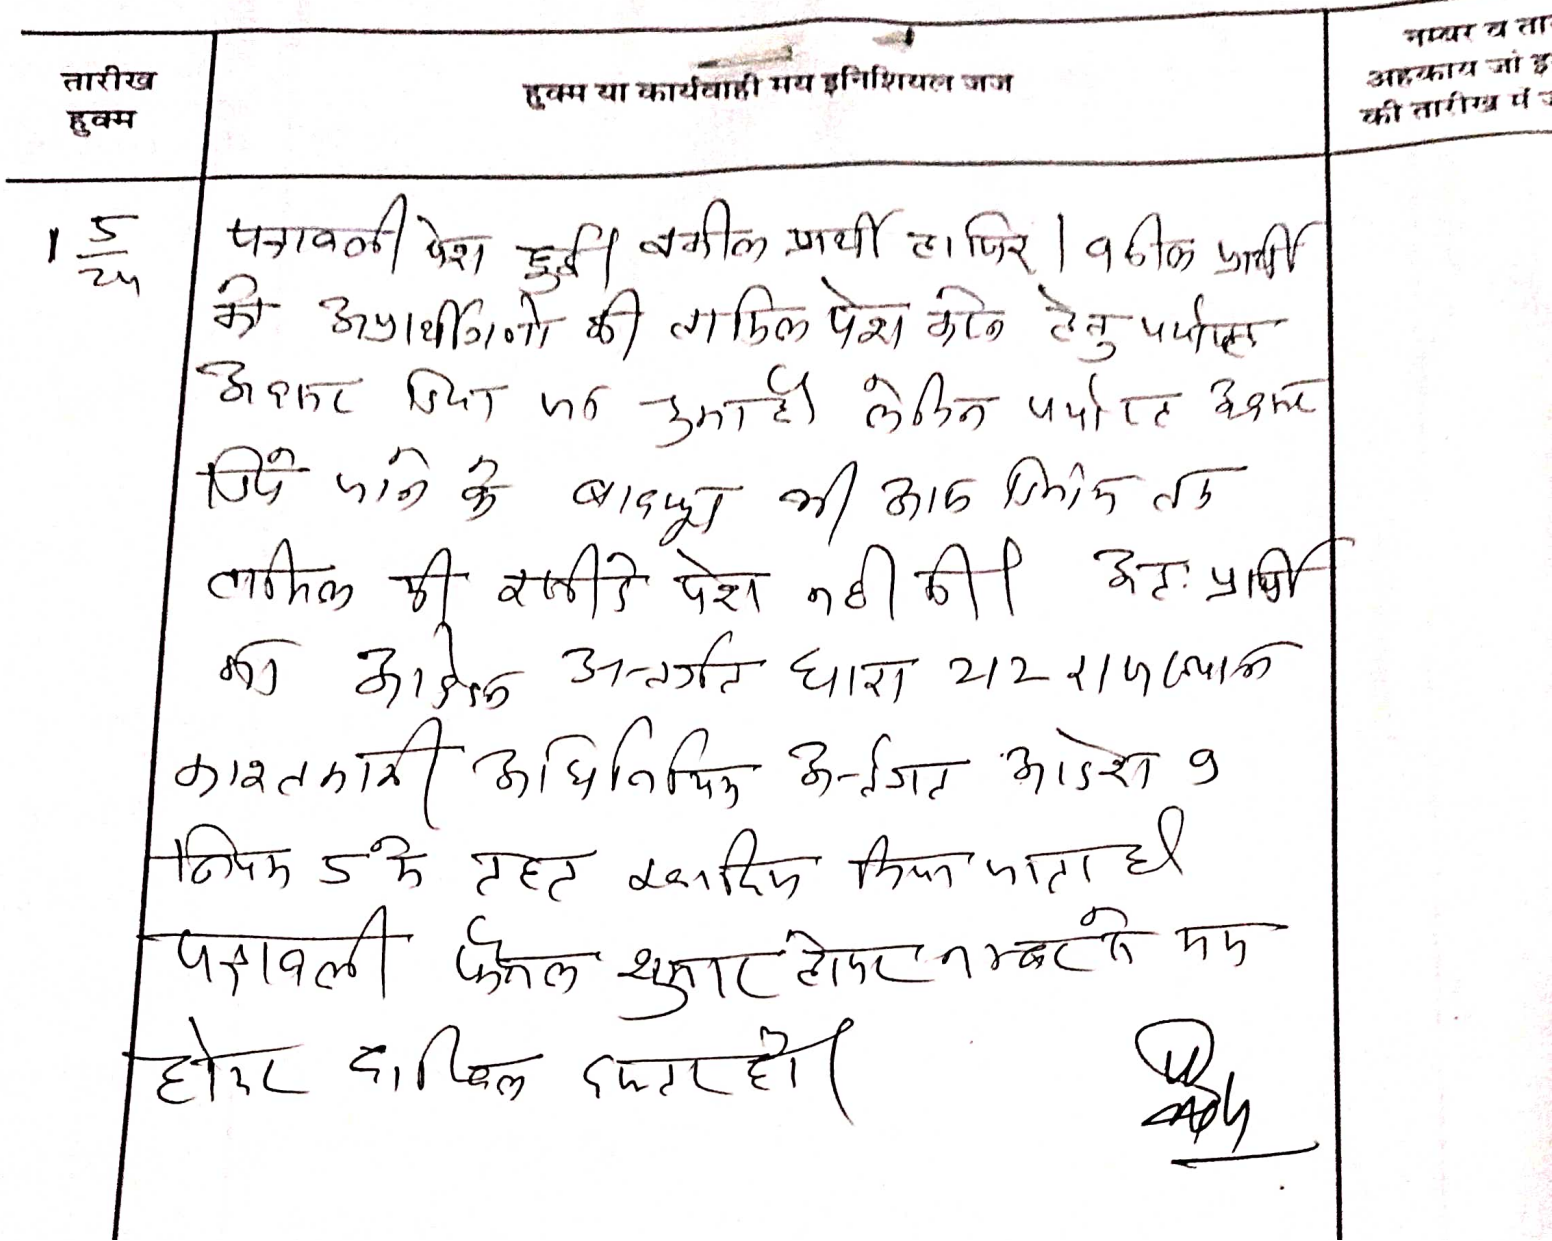 तारीख
हुक्म
हुक्म या कार्यवाही मय इनिशियल जज
नम्बर व ता
अहकाम जो इ
की तारीख में ज
1 5/24
पत्रावली पेश हुई। वकील प्रार्थी हाजिर। वकील प्रार्थी
को अप्रार्थीगणो की तामिल पेश करने हेतु पर्याप्त
अवसर दिया जा चुका है। लेकिन पर्याप्त अवसर
दिये जाने के बावजूद भी आज दिनांक तक
तामिल की रसीदे पेश नही की। अतः प्रार्थी
का अन्तर्गत धारा 212 राजस्थान
काश्तकारी अधिनियम अन्तर्गत आदेश 9
नियम 5 के तहत खारिज किया जाता है।
पत्रावली फैसल शुमार होकर नम्बर से कम
होकर दाखिल दफ्तर हो।